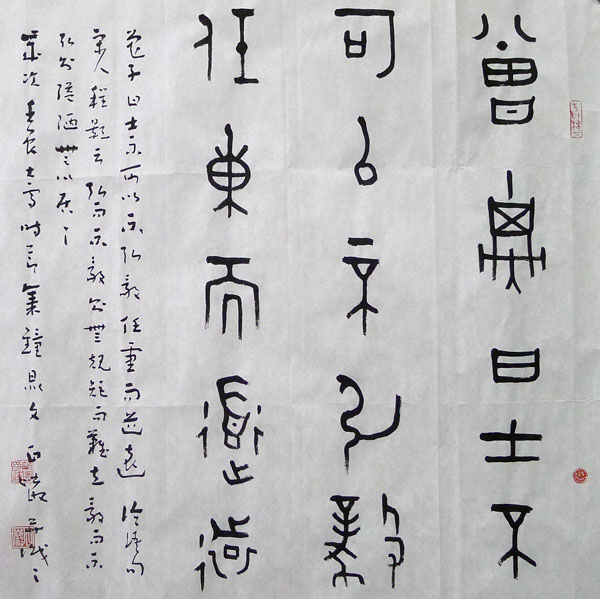 曾子曰士不
可以不弘毅
任重而道遠
曾子曰士不可以不弘毅任重而道遠 論語句
宋人程顥云弘而不毅則無規矩而難立毅而不
弘則隘陋無以居之
歲次壬辰大雪時節集鐘鼎文